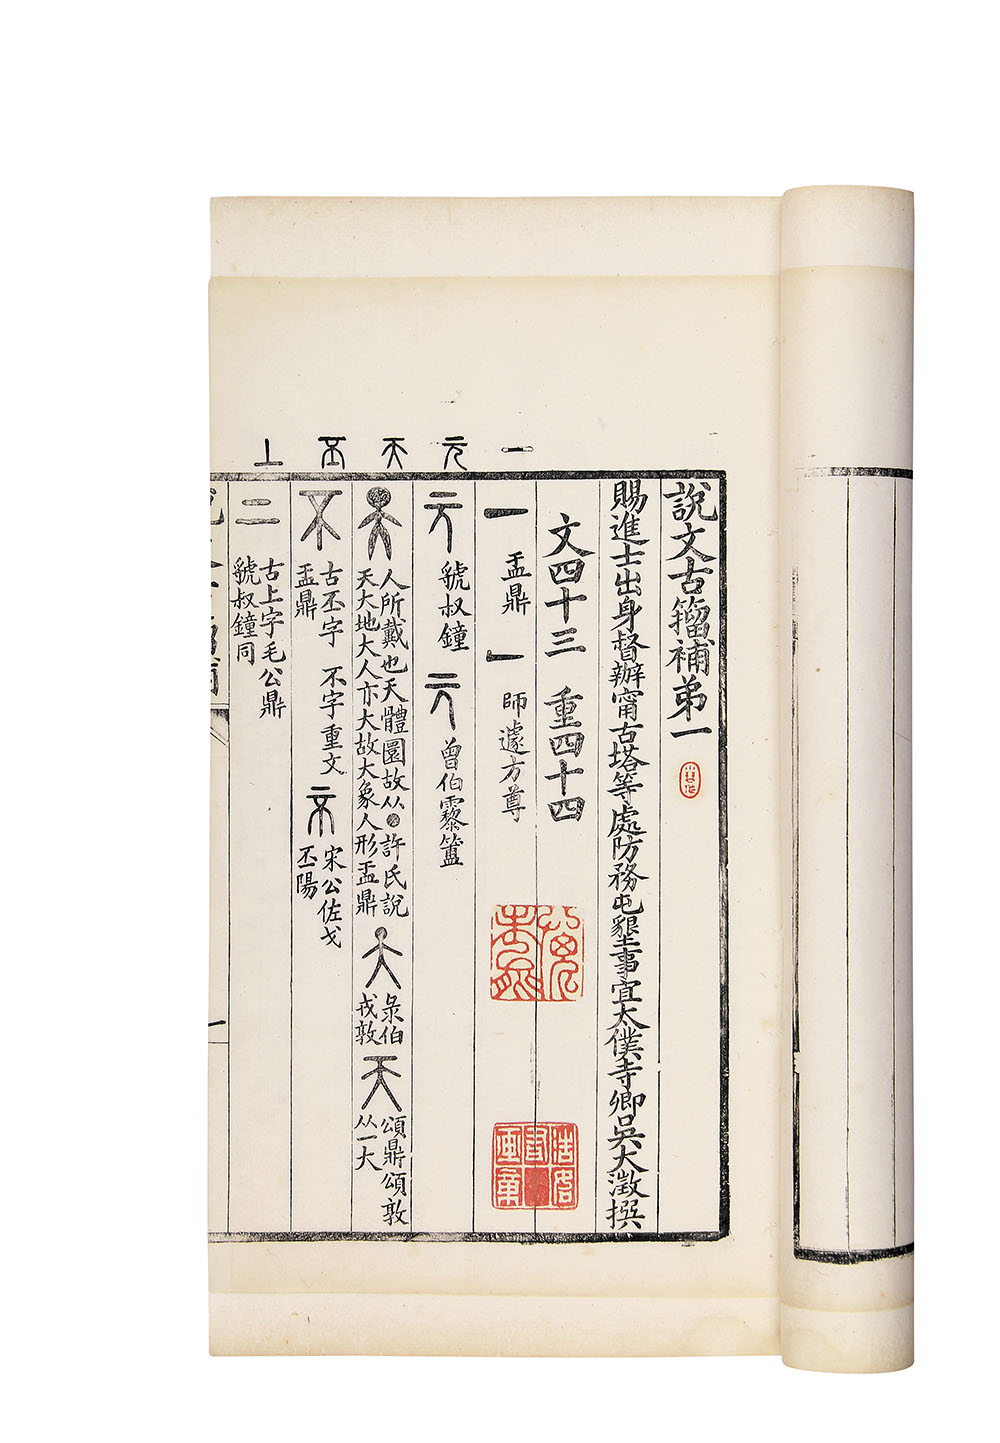 說文古籀補弟一
賜進士出身督辦甯古塔等處防務屯墾事宜太僕寺卿吳大澂撰
文四十三 重四十四
一 盂鼎 一 師遽方尊
元 虢叔鐘 元 曾伯霥簠
天 人所戴也天體圜故从●許氏說
天大地大人亦大故大象人形盂鼎 天 彔伯
戎敦 天 頌鼎頌敦
从一大
不 古丕字 不字重文
盂鼎 不 宋公佐戈
丕陽
二 古上字毛公鼎
虢叔鐘同
一
元
天
不
上